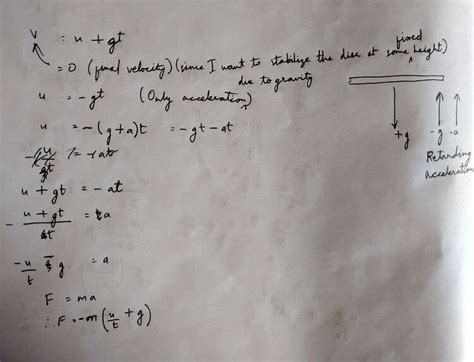 v = u + gt
= 0 (final velocity) (since I want to stabilize the disc at some fixed height)
u = -gt (Only acceleration due to gravity)
u = -(g+a)t = -gt - at
u + gt = -at
- (u + gt)/t = a
-u/t - g = a
F = ma
∴ F = -m(u/t + g)
+g
-g -a
Retarding
acceleration